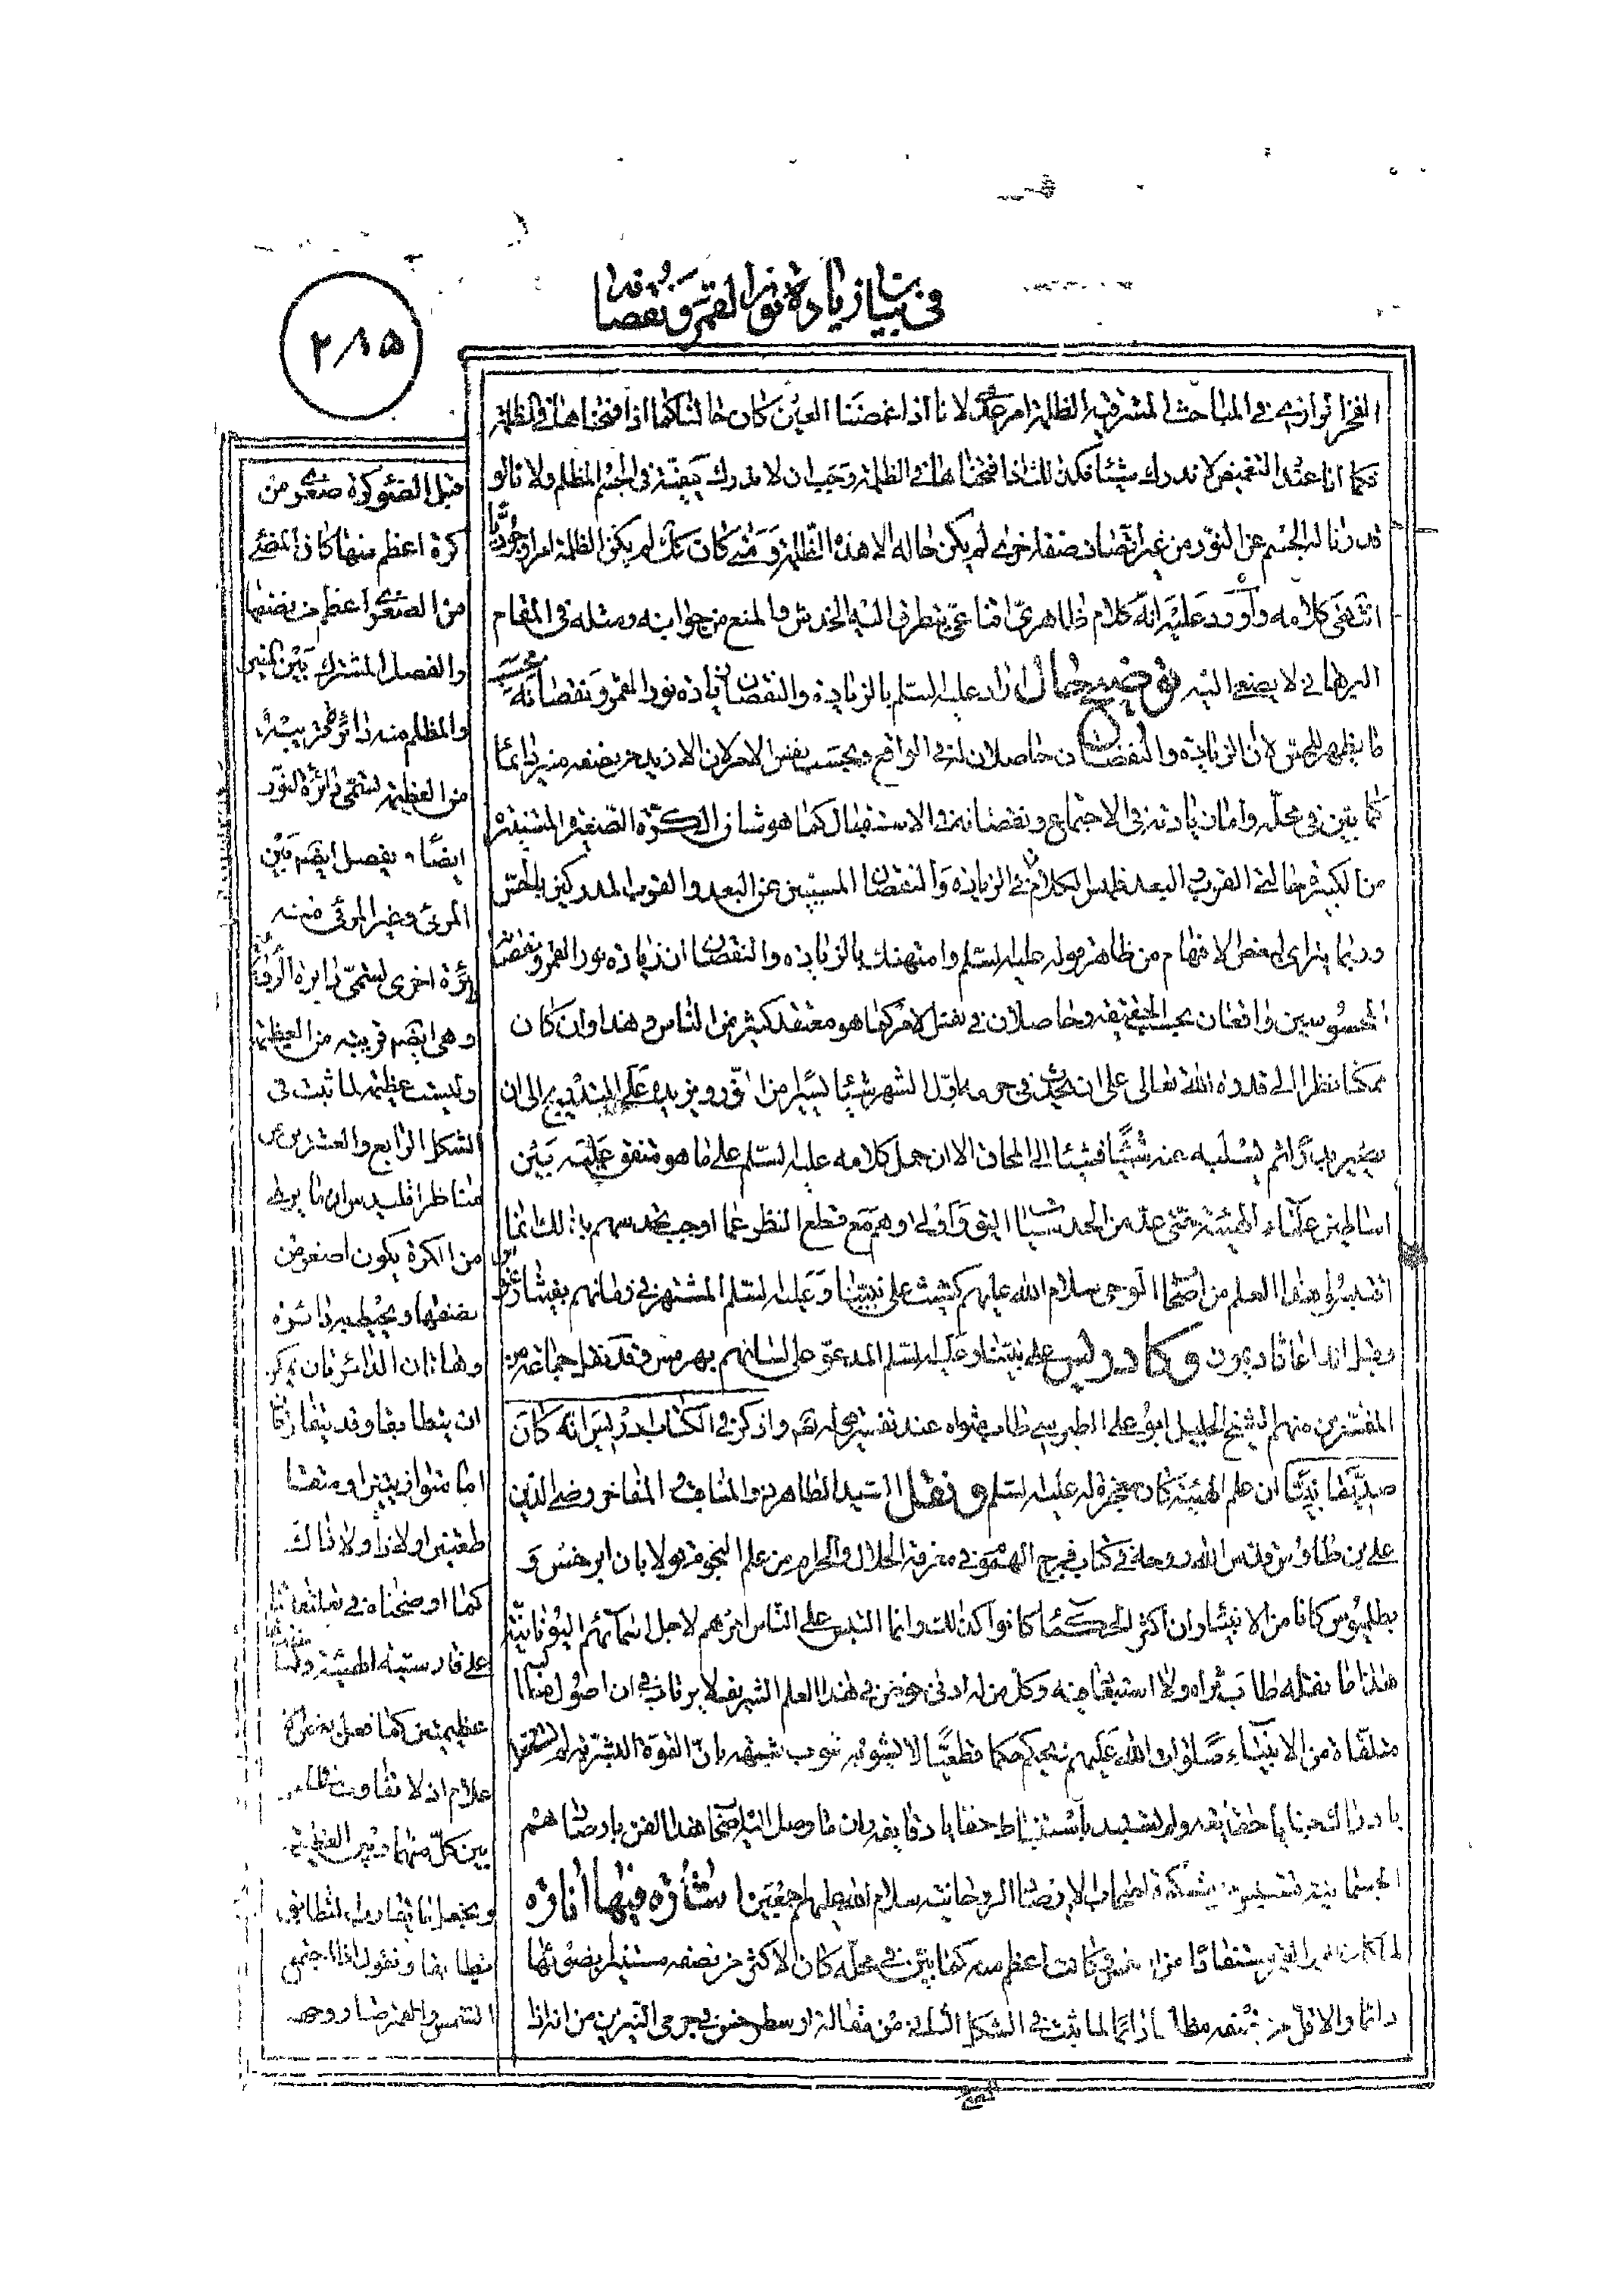 في بيان زيادة نور القمر ونقصانه
٢٨٥
الفخر الرازي في المباحث المشرقية الظلمة امر عدمي لانا اذا غمضنا العين كان حالنا كما اذا فتحناها في الظلمة
فكما انا عند التغميض لا ندرك شيئا فكذلك اذا فتحناها في الظلمة وجب ان لا ندرك كيفية في الجسم المظلم ولانا لو
قدرنا الجسم عن النور من غير انضياف صفة اخرى لم يكن حاله الا هذه الظلمة ومتى كان كذلك لم يكن الظلمة امرا وجوديا
انتهى كلامه واورد عليه انه كلام ظاهري اقناعي يتطرق اليه الخدش والمنع من جوانبه ومثله في المقام
البرهاني لا يصغى اليه توضيح حال اراد عليه السلم بالزيادة والنقصان زيادة نور القمر ونقصانه بحسب
ما يظهر للحس لا ان الزيادة والنقصان حاصلان له في الواقع وبحسب نفس الامر لان الازيد من نصفه منير دائما
كما بين في محله واما زيادته في الاجتماع ونقصانه في الاستقبال كما هو شان الكرة الصغيرة المستنيرة
من الكبيرة حالتي القرب والبعد فليس الكلام في الزيادة والنقصان المسببين عن البعد والقرب المدركين بالحس
وربما يتراى لبعض الافهام من ظاهر قوله عليه السلم وامتهنك بالزيادة والنقصان ان زيادة نور القمر ونقصانه
المحسوسين واقعان بحسب الحقيقة وحاصلان في نفس الامر كما هو معتقد كثير من الناس وهذا وان كان
ممكنا نظرا الى قدرة الله تعالى على ان يحدث في جرمه اول الشهر شيئا يسيرا من النور ويزيده على التدريج الى ان
يصير بدرا ثم يسلبه عنه شيئا فشيئا الى المحاق الا ان حمل كلامه عليه السلم على ما هو متفق عليه بين
اساطين علماء الهيئة حتى عد من الحدسيات اليق واولى وهم مع قطع النظر عما اوجب حدسهم بذلك انما
اقتبسوا هذا العلم من اصحاب الوحي سلام الله عليهم كشيث على نبينا وعليه السلم المشتهر في زمانهم بفيثاغورس
وقيل انه اغاثاديمون وكادريس على نبينا وعليه السلم المدعو على لسانهم بهرمس وقد نقل جماعة من
المفسرين منهم الشيخ الجليل ابو علي الطبرسي طاب مثواه عند تفسير قوله تعم واذكر في الكتاب ادريس انه كان
صديقا نبيا ان علم الهيئة كان معجزة له عليه السلم ونقل السيد الطاهر ذو المناقب والمفاخر رضي الدين
علي بن طاوس قدس الله روحه في كتاب فرج المهموم في معرفة الحلال والحرام من علم النجوم قولا بان ابرخس و
بطلميوس كانا من الانبياء وان اكثر الحكماء كانوا كذلك وانما التبس على الناس امرهم لاجل اسمائهم اليونانية
هذا ما نقله طاب ثراه ولا استبعاد فيه وكل من له ادنى خوض في هذا العلم الشريف لا يرتاب في ان اصوله
متلقاة من الانبياء صلوات الله عليهم ويحكم حكما قطعيا لا يشوبه شوب شبهة بان القوة البشرية
بادراك خبايا حقايقه ولم تستبد باستنباط خفايا دقايقه وان ما وصل اليه اصحاب هذا الفن بارصادهم
الجسمانية مقتبس من مشكوة اصحاب الارصاد الروحانية سلام الله عليهم اجمعين اشارة فيها انارة
لما كان نور القمر مستفادا من الشمس وكانت اعظم منه كما بين في محله كان الاكثر من نصفه مستنيرا بضوئها
دائما والاقل من نصفه مظلما دائما لما ثبت في الشكل الثاني من مقالة ارسطرخس في جرمي النيرين من انه اذا
قبل الضوء كرة صغرى من
كرة اعظم منها كان المضئ
من الصغرى اعظم من نصفها
والفصل المشترك بين المنير
والمظلم منه دائرة قريبة
من العظيمة تسمى دائرة النور
ايضا ويفصل ايضم بين
المرئي وغير المرئي منه
دائرة اخرى تسمى دايرة الرؤية
وهي ايضم قريبة من العظيمة
وليست عظيمة لما ثبت في
الشكل الرابع والعشرين من
مناظر اقليدس ان ما يرى
من الكرة يكون اصغر من
نصفها ويحيط به دائرة
وهاتان الدائرتان يمكن
ان يتطابقا وقد يتفارقا
اما متوازيتين او متقا
طعتين اولا ذا ولا ذاك
كما اوضحناه في تعليقاتنا
على فارسية الهيئة وتؤخذان
عظيمتين كما فعل بعض
الاعلام اذ لا تفاوت في الحس
بين كل منهما وبين العظيمة
ويجعل ما يقارب التطابق
تطابقا ونقول اذا اجتمع
الشمس والقمر صار وجهه
الصحيح